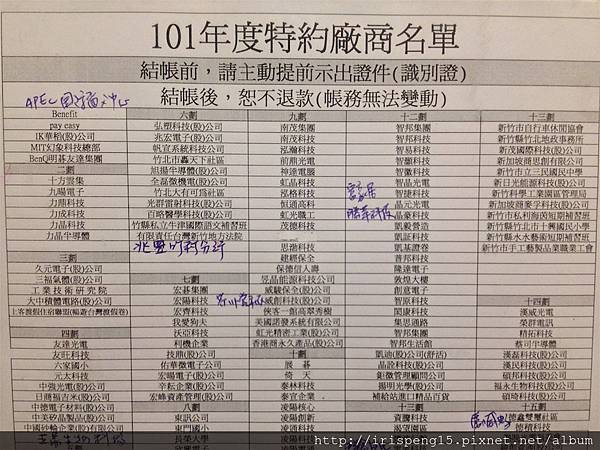 101年度特約廠商名單
結帳前，請主動提前示出證件(識別證)
結帳後，恕不退款(帳務無法變動)
Benefit
pay easy
IK華稻(股)公司
MIT幻象科技總部
BenQ明碁友達集團
二劃
十方雲集
九暘電子
力鼎科技
力成科技
力晶科技
力晶半導體
三劃
久元電子(股)公司
三福氣體(股)公司
工業技術研究院
大中積體電路(股)公司
上客渡假住宿聯盟(暢遊台灣渡假卷)
四劃
友達光電
友旺科技
六家國小
元太科技
中強光電(股)公司
日商福吉米(股)公司
中德電子材料(股)公司
中美矽晶製品(股)公司
中國砂輪企業(股)公司
六劃
弘塑科技(股)公司
兆宏電子(股)公司
帆宣系統科技(股)公司
竹北市矗天下社區
旭揚半導體(股)公司
全磊微機電(股)公司
竹北大有可為社區
光群雷射科技(股)公司
百略醫學科技(股)公司
竹縣私立牛津國際語文補習班
有限責任台灣新竹地方法院
兆豐
七劃
宏碁集團
宏陽科技
宏齊科技
我愛狗夫
扶亞科技
利機企業
技鼎(股)公司
佑華微電子公司
宏騰電子公司
辛耘企業(股)公司
宏峰資產管理(股)公司
八劃
東訊公司
東門國小
長榮大學
九劃
南茂集團
南茂科技
泓瀚科技
前鼎光電
神達電腦
虹晶科技
泓格科技
恒通高科
虹光職工
茂德科技
思渤科技
建經保全
保德信人壽
昱品能源科技公司
威駿保全(股)公司
威創科技(股)公司
俠客一館高翠秀樹
美國諾發系統有限公司
虹光精密工業(股)公司
香港商永久產品(股)公司
十劃
展碁
倚天
泰林科技
泰宜企業
凌陽核心
凌陽創新
凌通科技
十二劃
智邦集團
智邦科技
智易科技
智微科技
智晶光電
晶元光電
晶豪科技
凱毅營造
凱鈺科技
凱証科技
凱碁證卷
普邦科技
隆達電子
敦煌大樓
創意電子
智原科技
閎康科技
集思通路
智邦生活館
凱迪(股)公司(舒活)
晶詮科技(股)公司
鉅微管理顧問公司
揚明光學(股)公司
補給站進口精品百貨
十三劃
資騰科技
渴望園區
十三劃
新竹市自行車休閒協會
新竹縣竹北地政事務所
新茂國際科技(股)公司
新加坡商思創有限公司
新竹市立三民國民中學
新日光能源科技(股)公司
新竹科學工業園區管理局
新加坡商麥孚科技(股)公司
新竹市私利海茵短期補習班
新竹縣竹北市十興國民小學
新竹縣水水藝術短期補習班
新竹市手工藝製品業職業工會
十四劃
漢威光電
榮群電訊
精拓科技
蔡司半導體
漢磊科技(股)公司
漢民科技(股)公司
碩邦科技(股)公司
福永生物科技(股)公司
碩琦科技(股)公司
十五劃
德鑫雙璽社區
德積科技
http://irispeng15.pixnet.net/album